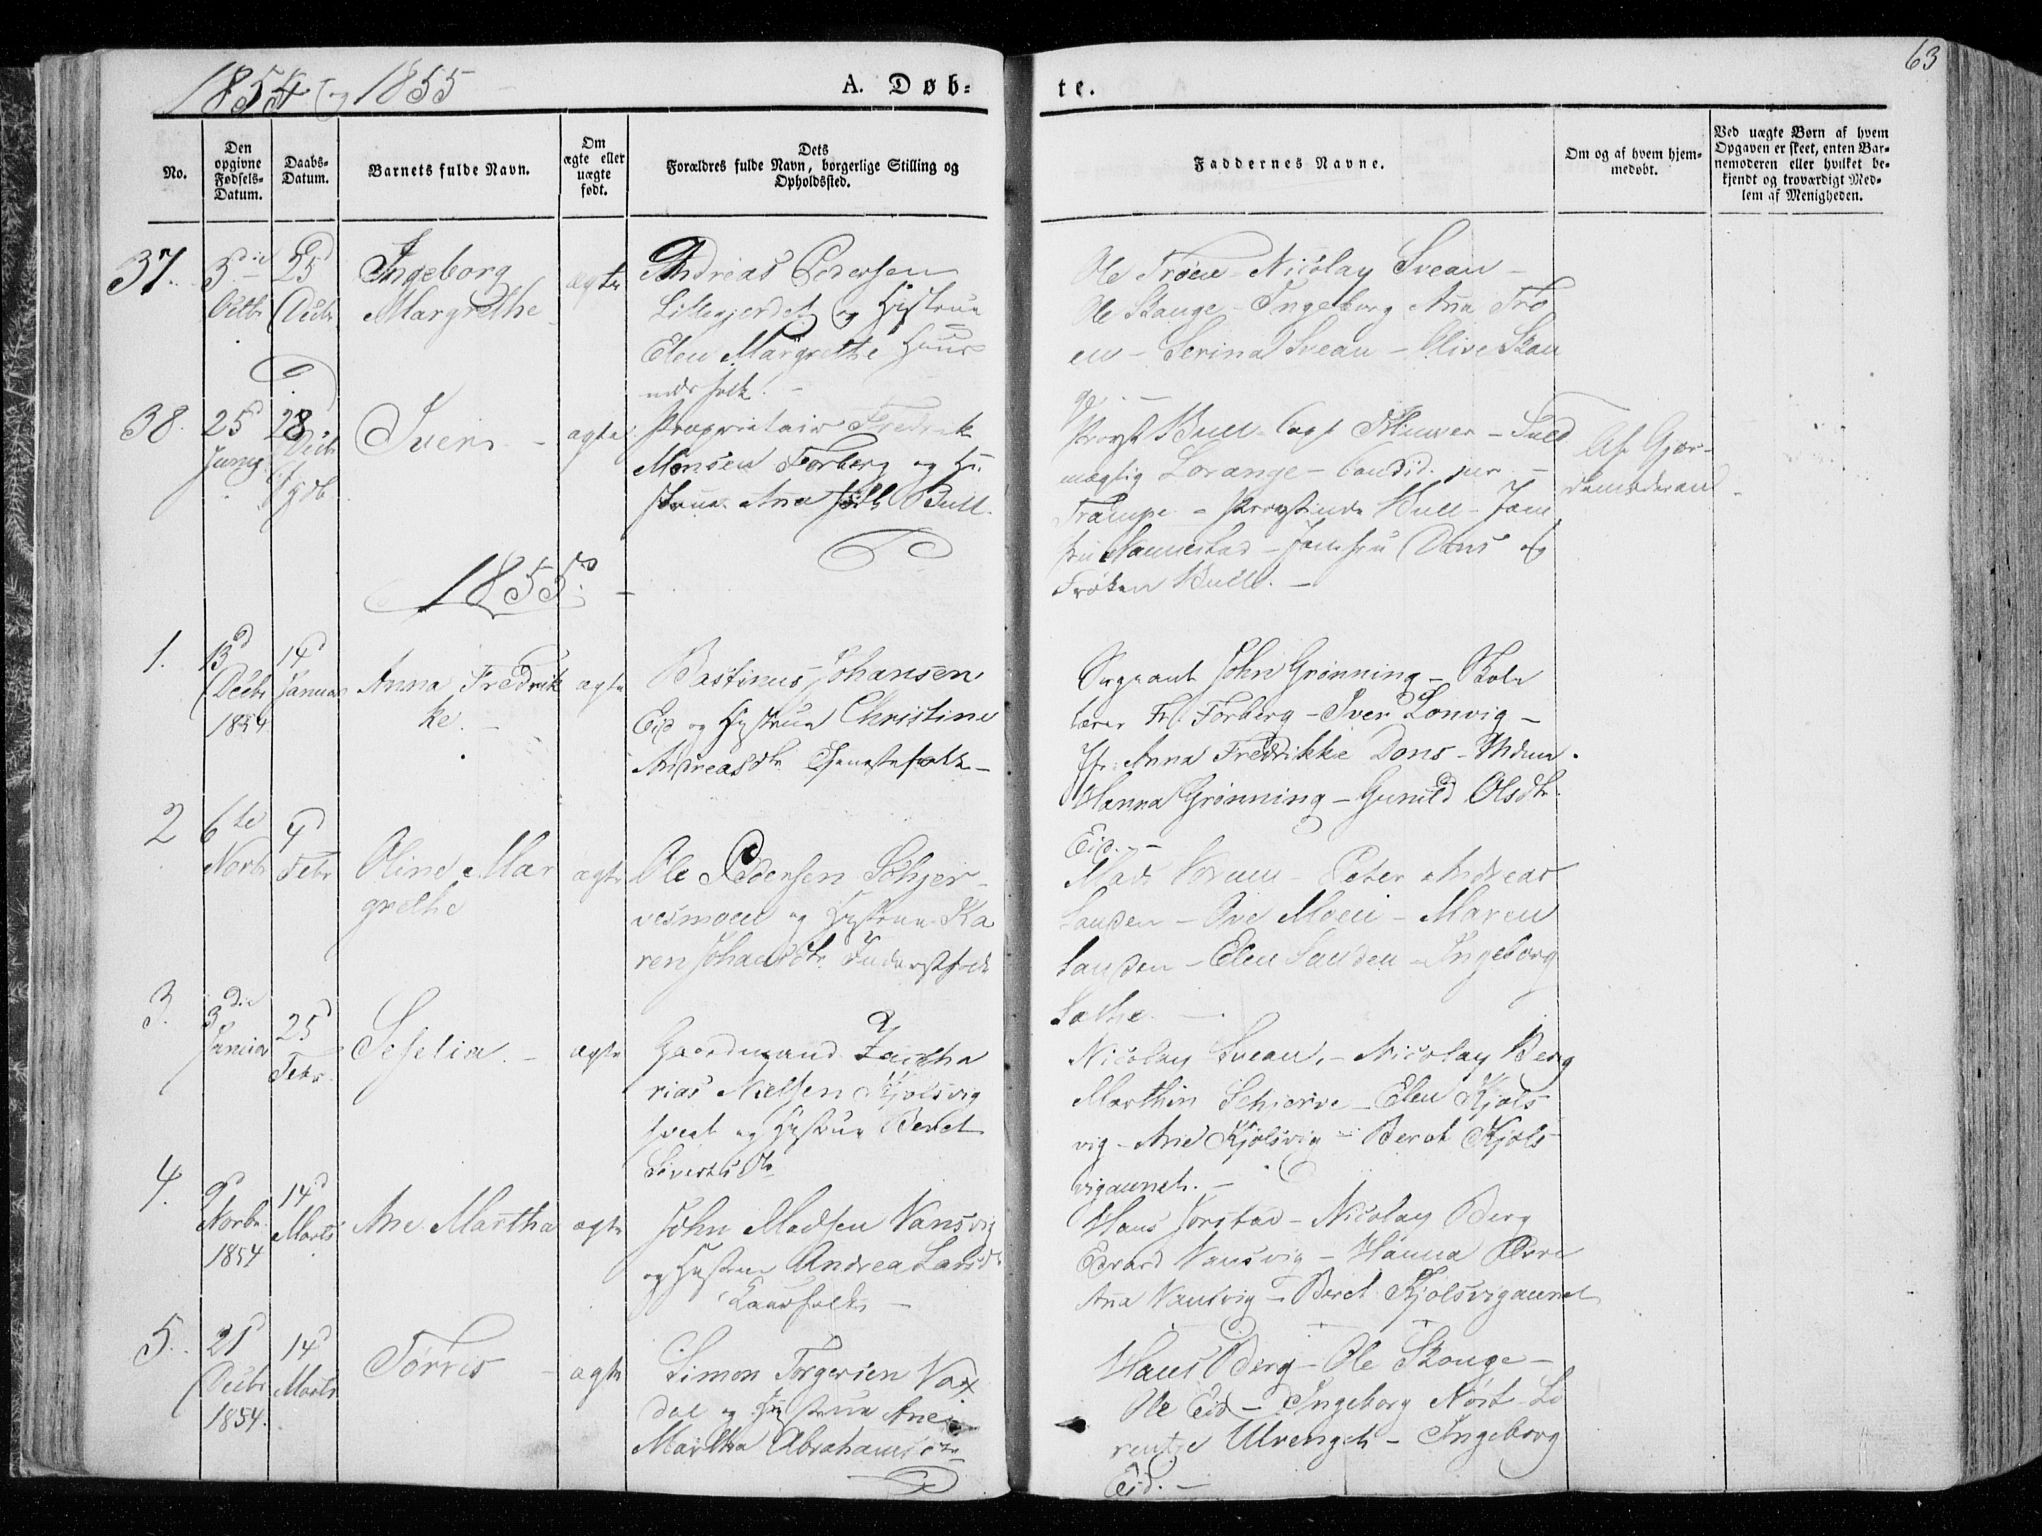 1854 og 1855
A. Døb-
te.
63
No.
Den opgivne Fødsels-Datum.
Daabs-Datum.
Barnets fulde Navn.
Om ægte eller uægte født.
Dets
Forældres fulde Navn, borgerlige Stilling og
Opholdssted.
Faddernes Navne.
Om og af hvem hjem-
medøbt.
Ved uægte Børn af hvem
Opgaven er skeet, enten Bar-
nemoderen eller hvilket be-
kjendt og troværdigt Med-
lem af Menigheden.
37.
3die
Octbr
25
Decbr
Ingeborg
Margrethe
ægte
Andreas Pedersen
Lillegjerdet og Hustrue
Elen Margrethe Huus
mandsfolk. -
Ole Trøen - Nicolay Svean -
Ole Skauge - Ingeborg Ana Trø
en - Serina Svean - Olive Skau
ge. -
38.
25
Juny
28
Decbr
Iver. -
ægte
Proprietair Fredrik
Monsen Forberg og Hu
strue Ana Bull.
Provst Bull - Capt - Fuld
mægtig Lorange - Candid. jur. -
Trampe - Provstinde Bull - Jom
fru Nannestad - Jomfru Dons og
Frøken Bull. -
Af Gjor-
demoderen -
1855. -
1.
13d
Decbr
1854
14d
Januar
Anna Fredrik
ke. -
ægte
Bastinus Johansen
Eid og Hustrue Christine
Andreasdtr Tjenestefolk -
Sergeant John Grønning - Skole
lærer Fr. Forberg - Iver Lonvig -
Jfr: Anna Fredrikke Dons - Mdm.
Hanna Grønning - Gunild Olsdtr
Eid. -
2
6te
Novbr
4d
Febr
Oline Mar
grethe
ægte
Ole Pedersen Schjer-
vesmoen og Hustrue Ka
ren Johansdtr Inderstfolk
Mads - Peter Andreas
Sanden - Ove Moen - Maren
Sanden - Elen Sanden - Ingeborg
3.
3die
Januar
25
Febr
Sefelia. -
ægte
Gaardmand Zacha
rias Nielsen Kjølsvig
og Hustrue Beret
Sivertsdtr
Nicolay Svean. - Nicolay Berg
Marthin Schjerve - Elen Kjøls
vig - Ane Kjølsvig - Beret Kjøls
vigaunet. -
4.
9
Novbr.
1854
14d
Marts
Ane Martha
ægte
John Madsen Vansvig
og Hustrue Andrea Larsdtr
Kaarfolk -
Hans Jørstad - Nicolay Berg
Edvard Vansvig - Hanna
Ana Vansvig - Beret Kjølsvigaunet
5.
21
Decbr
1854.
14d
Marts
Torris -
ægte
Simon Torgersen Vat
dal og Hustrue Ane
Martha Abrahamsdtr
Hans Berg - Ole Skauge -
Ole Eid - Ingeborg Nøst - Lo
rentze Ulvenget - Ingeborg
Eid. -